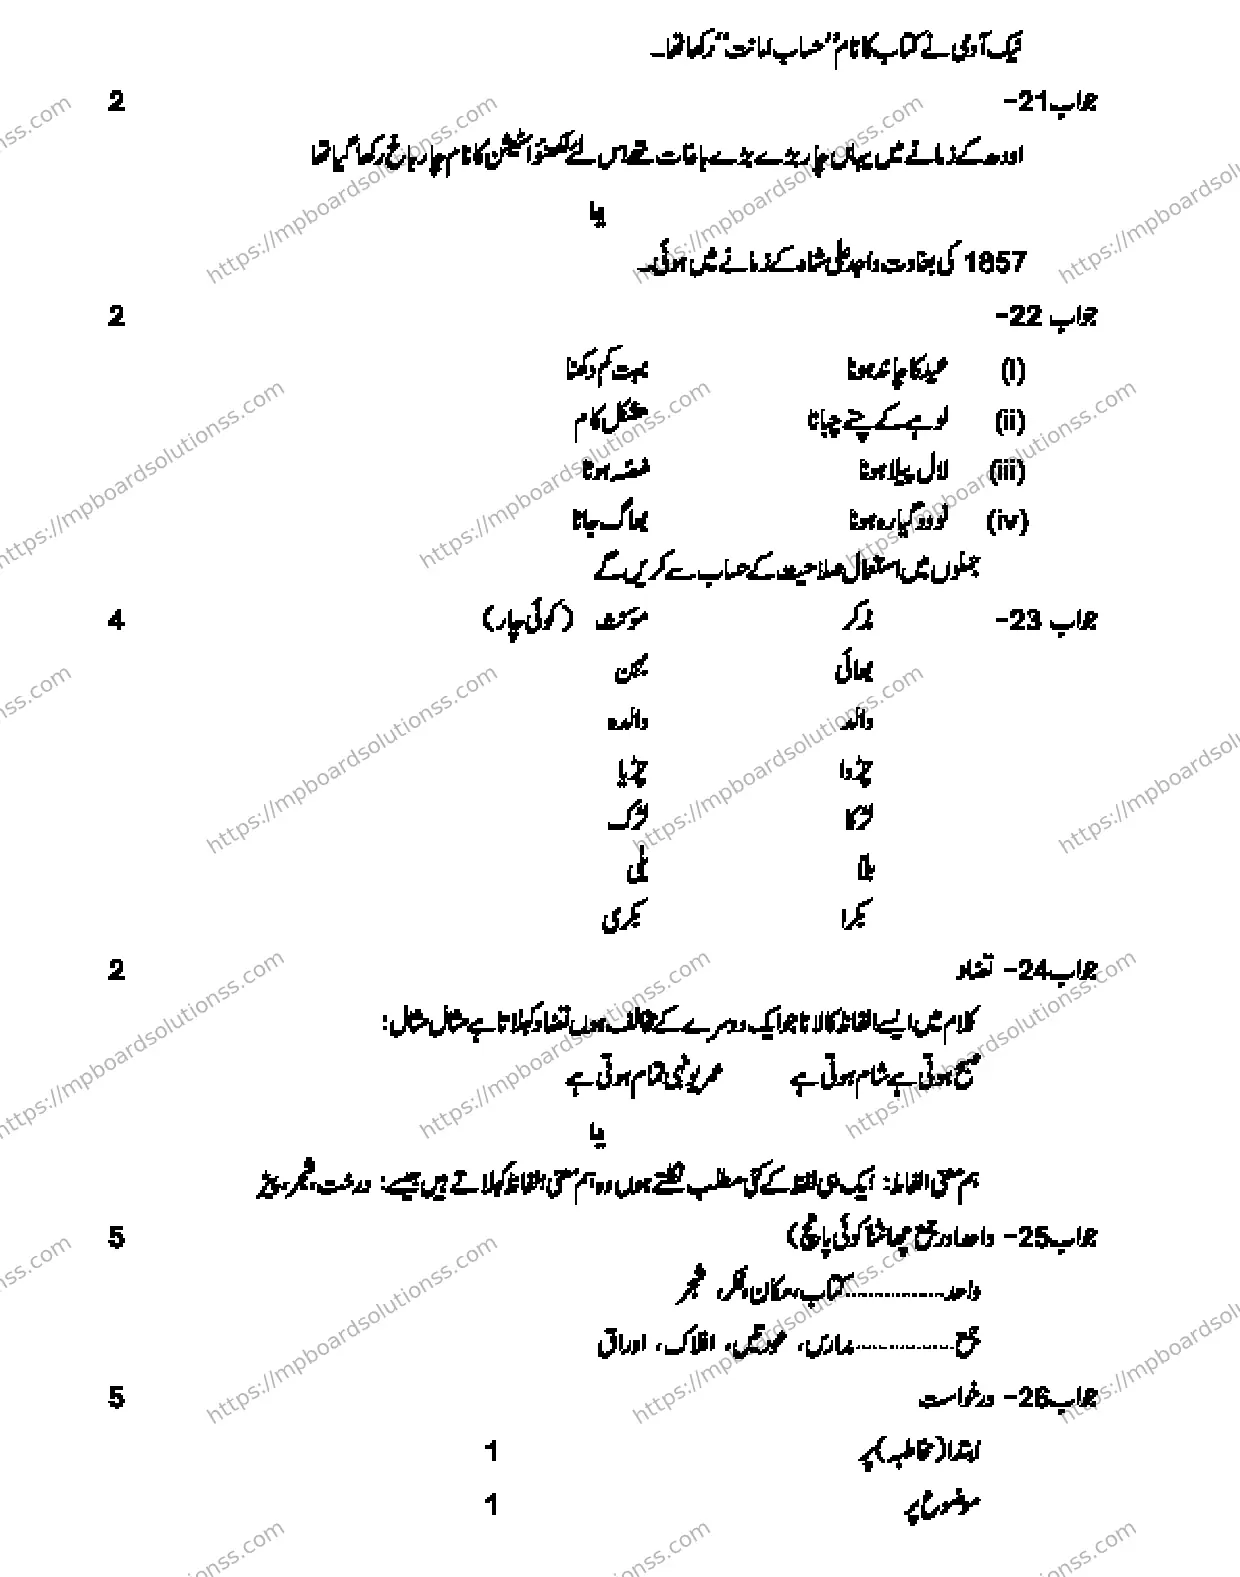 نیک آدمی نے کتاب کا نام "حساب امانت" رکھا تھا۔
جواب 21- 2
اودھ کے زمانے میں یہاں چار بڑے بڑے باغات تھے اس لئے لکھنؤ اسٹیشن کا نام چار باغ رکھا گیا تھا
یا
1857 کی بغاوت واجد علی شاہ کے زمانے میں ہوئی۔
جواب 22- 2
(i) عید کا چاند ہونا بہت کم دکھنا
(ii) لوہے کے چنے چبانا مشکل کام
(iii) لال پیلا ہونا غصہ ہونا
(iv) نو دو گیارہ ہونا بھاگ جانا
جملوں میں استعمال صلاحیت کے حساب سے کریں گے
جواب 23- مذکر مونث (کوئی چار) 4
بھائی بہن
والد والدہ
چڑوا چڑیا
لڑکا لڑکی
بلا بلی
بکرا بکری
جواب 24- تضاد 2
کلام میں ایسے الفاظ کا لانا جو ایک دوسرے کے مخالف ہوں تضاد کہلاتا ہے مثال مثال:
صبح ہوتی ہے شام ہوتی ہے عمر یونہی تمام ہوتی ہے
یا
ہم معنی الفاظ: ایک ہی لفظ کے کئی مطلب نکلتے ہوں وہ ہم معنی الفاظ کہلاتے ہیں جیسے: درخت، شجر، پیڑ
جواب 25- واحد اور جمع چھانٹنا کوئی پانچ) 5
واحد.................کتاب، مکان، فکر، شجر
جمع.................مدارس، عورتیں، افلاک، اوراق
جواب 26- درخواست 5
ابتدا (مخاطب) پر 1
موضوع پر 1
https://mpboardsolutionss.com